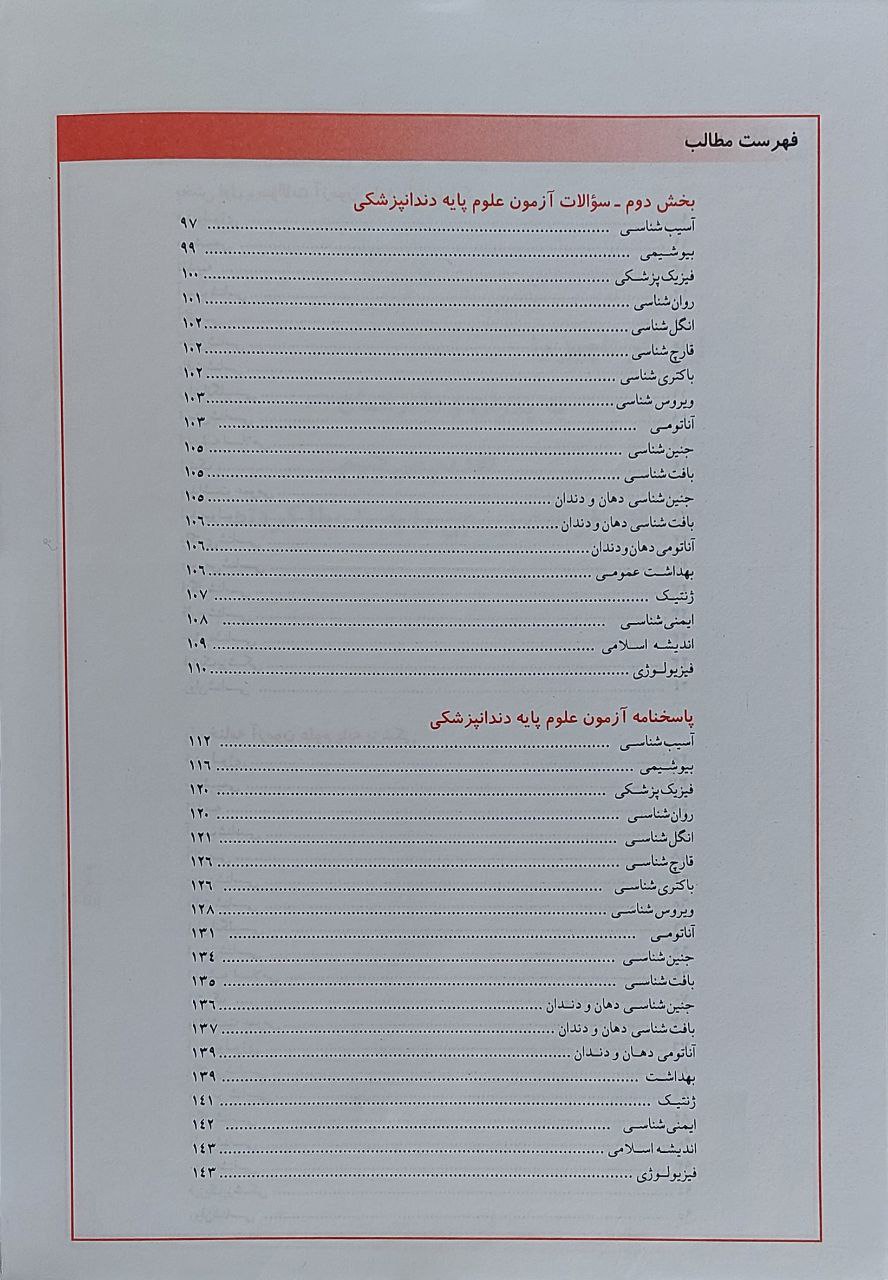 فهرست مطالب
بخش دوم ـ سؤالات آزمون علوم پایه دندانپزشکی
آسیب‌شناسی ۹۷
بیوشیمی ۹۹
فیزیک‌پزشکی ۱۰۰
روان‌شناسی ۱۰۱
انگل‌شناسی ۱۰۲
قارچ‌شناسی ۱۰۲
باکتری‌شناسی ۱۰۲
ویروس‌شناسی ۱۰۳
آناتومی ۱۰۳
جنین‌شناسی ۱۰۵
بافت‌شناسی ۱۰۵
جنین‌شناسی دهان و دندان ۱۰۵
بافت‌شناسی دهان و دندان ۱۰۶
آناتومی دهان و دندان ۱۰۶
بهداشت عمومی ۱۰۶
ژنتیک ۱۰۷
ایمنی‌شناسی ۱۰۸
اندیشه اسلامی ۱۰۹
فیزیولوژی ۱۱۰
پاسخنامه آزمون علوم پایه دندانپزشکی
آسیب‌شناسی ۱۱۲
بیوشیمی ۱۱۶
فیزیک‌پزشکی ۱۲۰
روان‌شناسی ۱۲۰
انگل‌شناسی ۱۲۱
قارچ‌شناسی ۱۲۶
باکتری‌شناسی ۱۲۶
ویروس‌شناسی ۱۲۸
آناتومی ۱۳۱
جنین‌شناسی ۱۳۴
بافت‌شناسی ۱۳۵
جنین‌شناسی دهان و دندان ۱۳۶
بافت‌شناسی دهان و دندان ۱۳۷
آناتومی دهان و دندان ۱۳۹
بهداشت ۱۳۹
ژنتیک ۱۴۱
ایمنی‌شناسی ۱۴۲
اندیشه اسلامی ۱۴۳
فیزیولوژی ۱۴۳